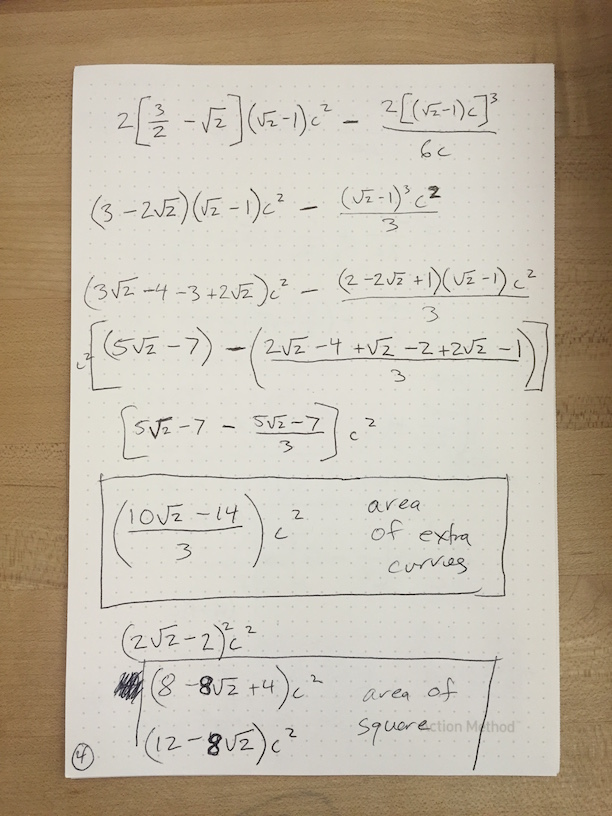 2[3/2 - √2](√2-1)c² - 2[(√2-1)c]³/6c
(3-2√2)(√2-1)c² - (√2-1)³c²/3
(3√2-4-3+2√2)c² - (2-2√2+1)(√2-1)c²/3
c²[(5√2-7) - (2√2-4+√2-2+2√2-1/3)]
[5√2-7 - 5√2-7/3]c²
(10√2-14/3)c² area
of extra
curves
(2√2-2)²c²
(8-8√2+4)c² area of
square
(12-8√2)c²
ction Method
4